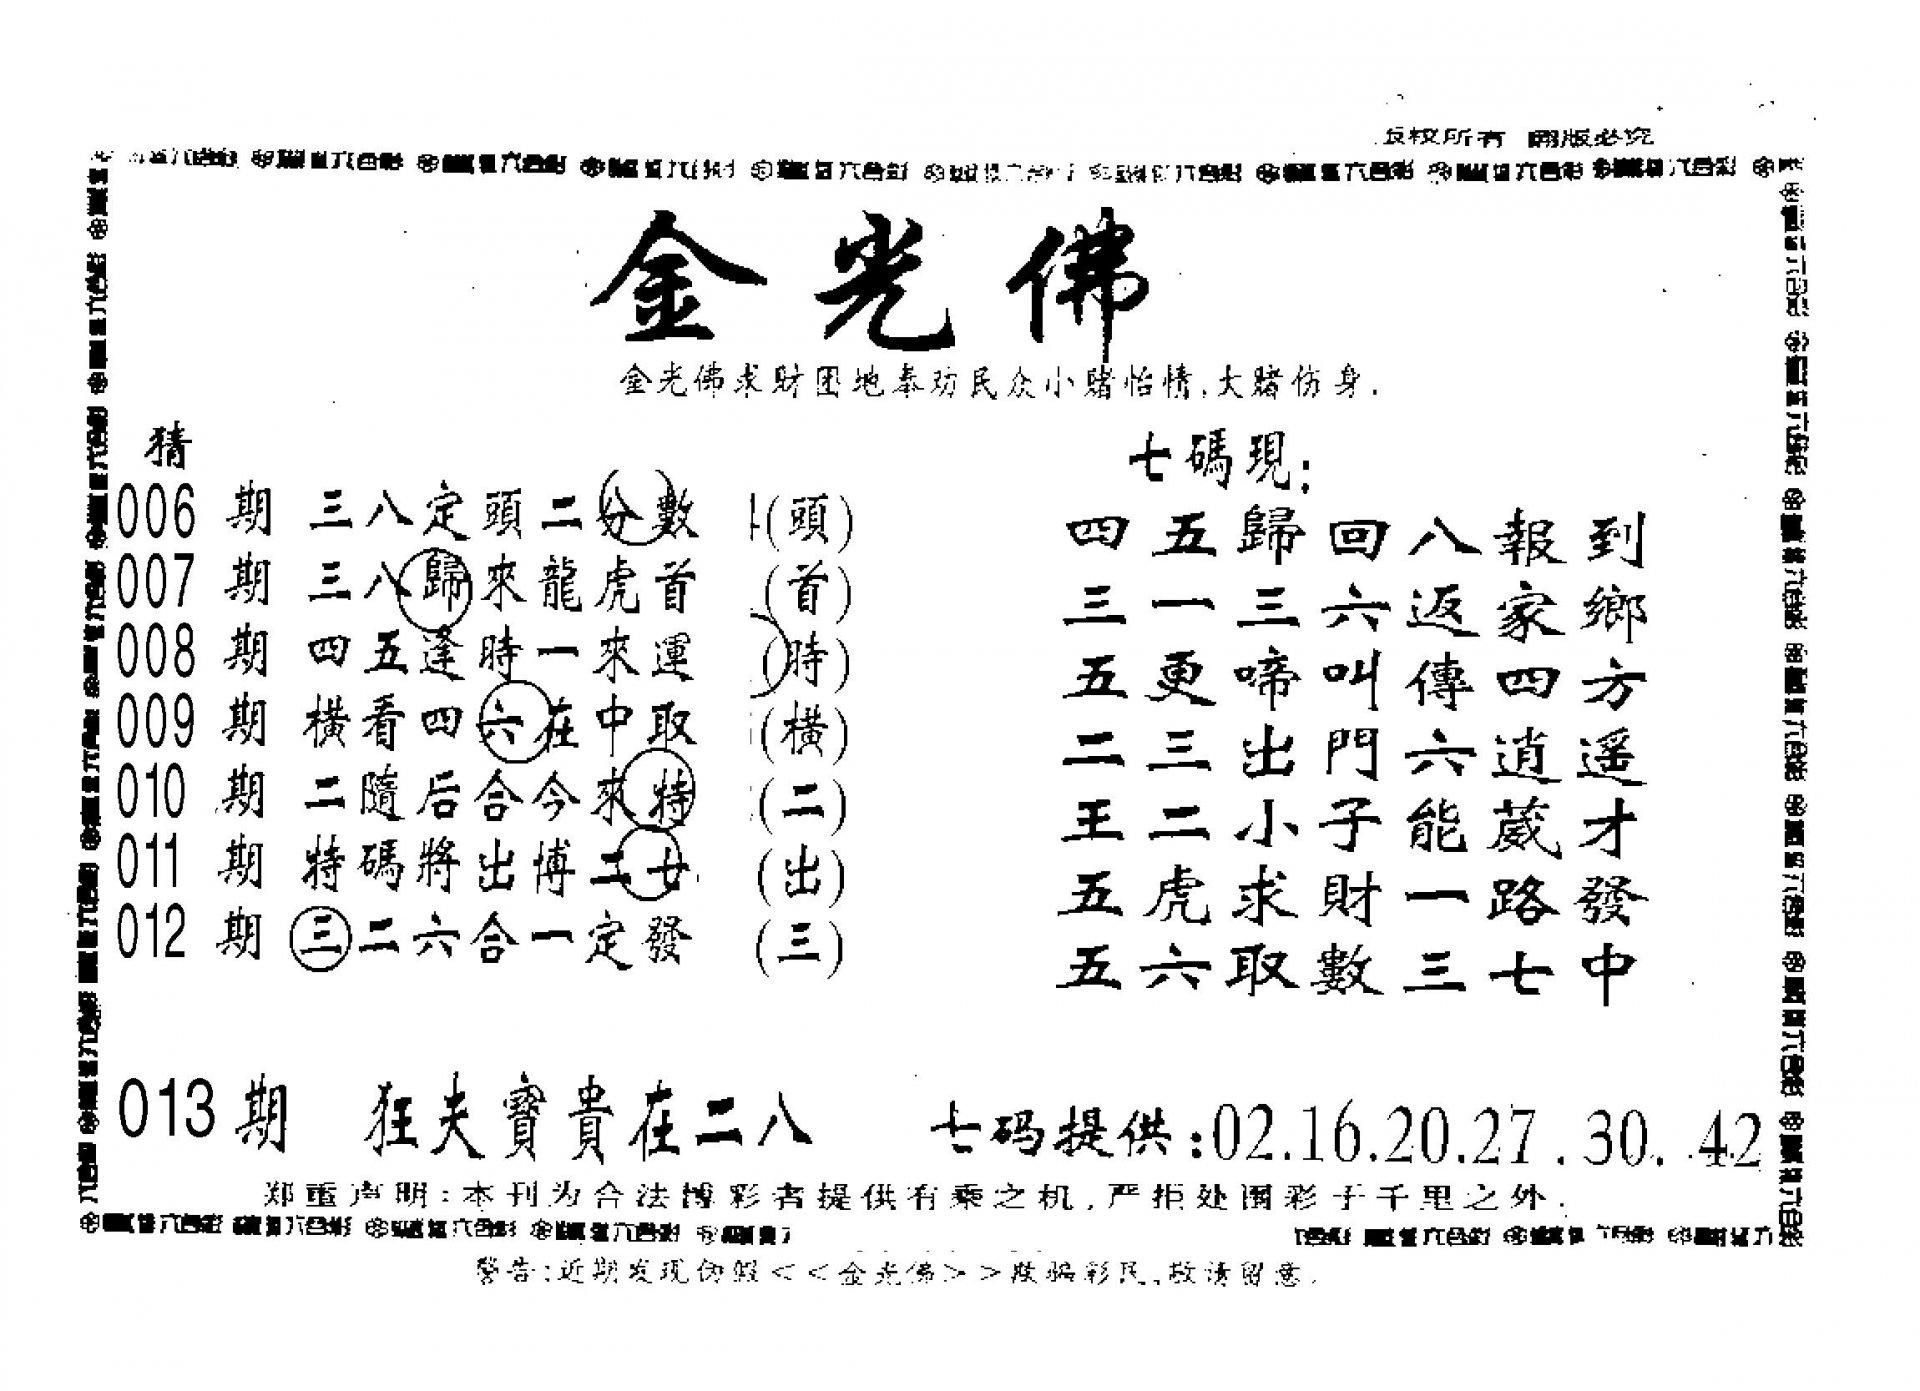 版权所有 翻版必究
金光佛
金光佛求财团地奉劝民众小赌怡情,大赌伤身.
猜
006期 三八定頭二分數 (頭)
007期 三八歸來龍虎首 (首)
008期 四五逢時一來運 (時)
009期 横看四六在中取 (横)
010期 二隨后合今來特 (二)
011期 特碼將出博二廿 (出)
012期 三二六合一定發 (三)
七碼現:
四五歸回八報到
三一三六返家鄉
五更啼叫傳四方
二三出門六逍遥
王二小子能葳才
五虎求財一路發
五六取數三七中
013期 狂夫寶貴在二八
七码提供:02.16.20.27.30.42
郑重声明:本刊为合法博彩者提供有乘之机,严拒处围彩于千里之外.
警告:近期发现伪假<<金光佛>>欺骗彩民,敬请留意.